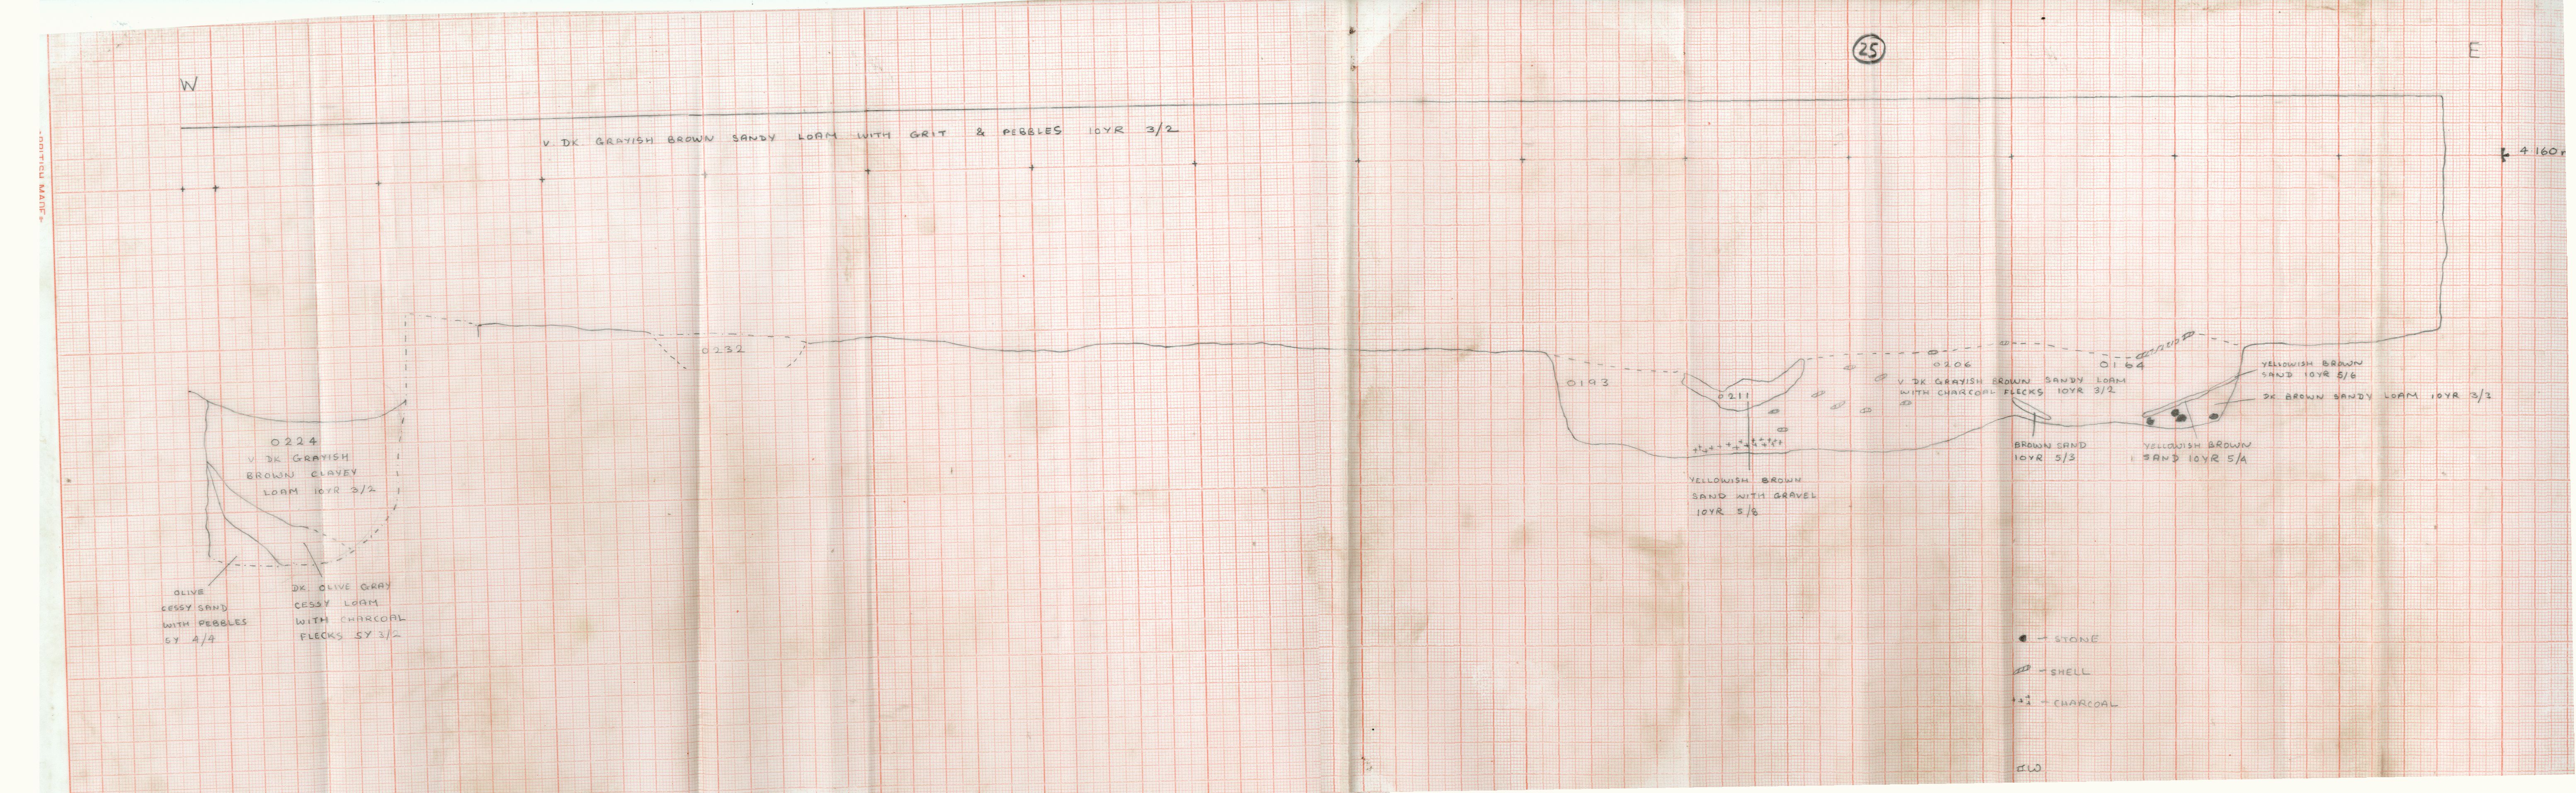 25
W
E
V. DK. GRAYISH BROWN SANDY LOAM WITH GRIT & PEBBLES 10YR 3/2
4 160
0232
0224
V DK GRAYISH
BROWN CLAYEY
LOAM 10YR 3/2
OLIVE
CESSY SAND
WITH PEBBLES
5Y 4/4
DK. OLIVE GRAY
CESSY LOAM
WITH CHARCOAL
FLECKS 5Y 3/2
0193
0211
YELLOWISH BROWN
SAND WITH GRAVEL
10YR 5/8
0206
V. DK GRAYISH BROWN SANDY LOAM
WITH CHARCOAL FLECKS 10YR 3/2
0164
BROWN SAND
10YR 5/3
YELLOWISH BROWN
SAND 10YR 5/4
YELLOWISH BROWN
SAND 10YR 5/6
DK BROWN SANDY LOAM 10YR 3/3
- STONE
- SHELL
- CHARCOAL